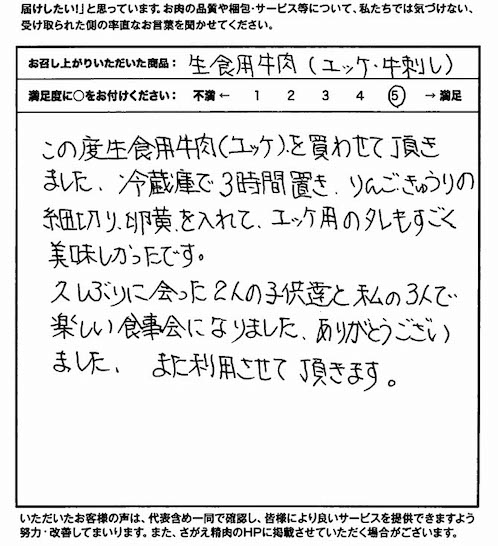 届けしたい！」と思っています。お肉の品質や梱包・サービス等について、私たちでは気づけない、
受け取られた側の率直なお言葉を聞かせてください。
お召し上がりいただいた商品： 生食用牛肉(ユッケ・牛刺し)
満足度に○をお付けください： 不満 ← 1 2 3 4 5 → 満足
この度生食用牛肉(ユッケ)を買わせて頂き
ました、冷蔵庫で3時間置き、りんごきゅうりの
細切り、卵黄を入れて、ユッケ用のタレもすごく
美味しかったです。
久しぶりに会った2人の子供達と私の3人で
楽しい食事会になりました、ありがとうござい
ました、 また利用させて頂きます。
いただいたお客様の声は、代表含め一同で確認し、皆様により良いサービスを提供できますよう
努力・改善してまいります。また、さがえ精肉のHPに掲載させていただく場合がございます。